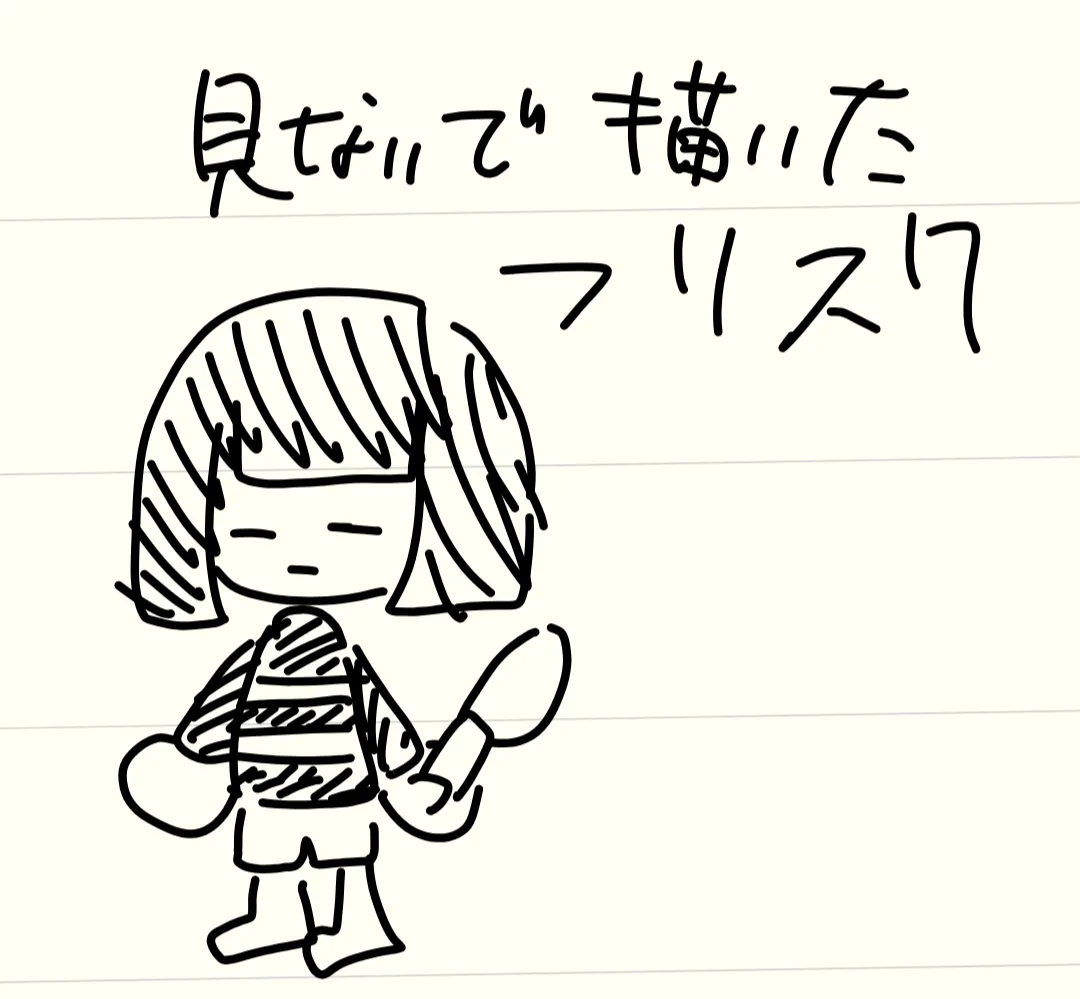 見ないで描いた
フリスク